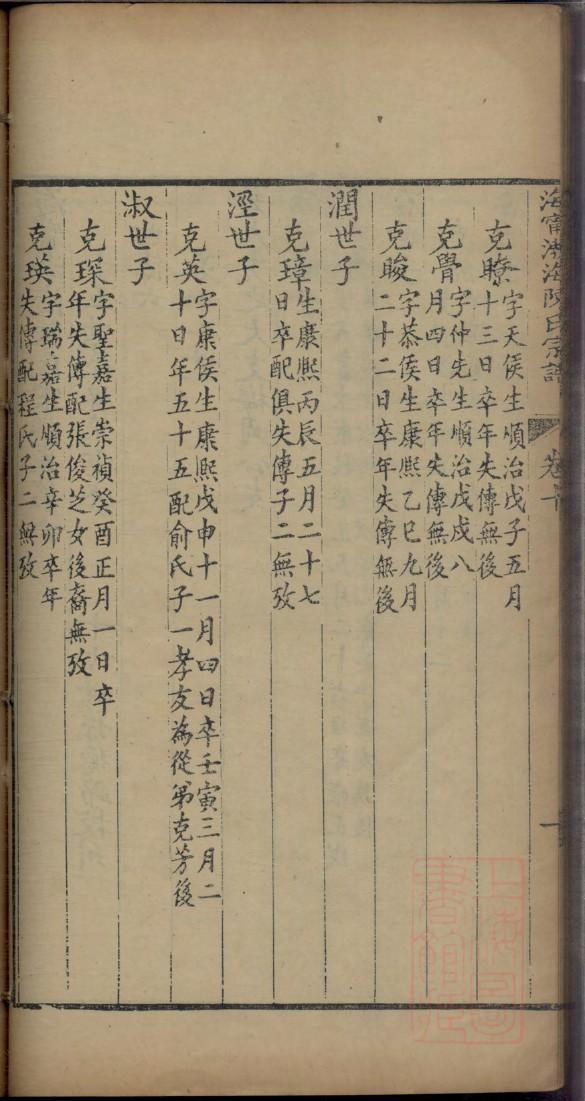 海甯渤海陳氏宗譜
卷首
克瞭字天侯生順治戊子五月
十三日卒年失傳無後
克覺字仲先生順治戊戌八
月四日卒年失傳無後
克晙字恭侯生康熙乙巳九月
二十二日卒年失傳無後
潤世子
克璋生康熙丙辰五月二十七
日卒配俱失傳子二無攷
溼世子
克英字康侯生康熙戊申十一月四日卒壬寅三月二
十日年五十五配俞氏子一孝友為從弟克芳後
淑世子
克琛字聖嘉生崇禎癸酉正月一日卒
年失傳配張俊芝女後裔無攷
克瑛字瑞嘉生順治辛卯卒年
失傳配程氏子二無攷
上海圖書館藏